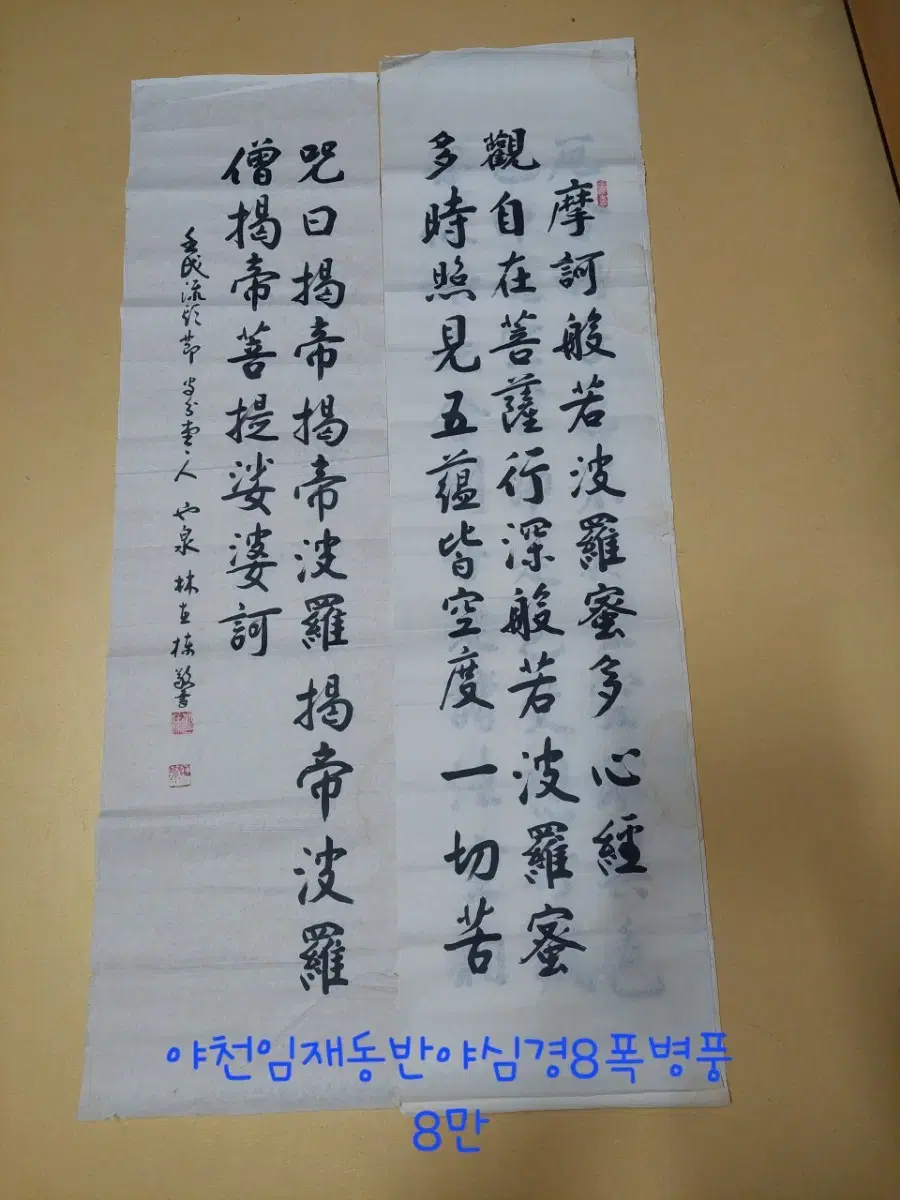 摩訶般若波羅蜜多心經
觀自在菩薩行深般若波羅蜜
多時照見五蘊皆空度一切苦
呪曰揭帝揭帝波羅揭帝波羅
僧揭帝菩提娑婆訶
壬戌流頭節 人 也泉 林在棟 敬書
야천임재동반야심경8폭병풍
8만